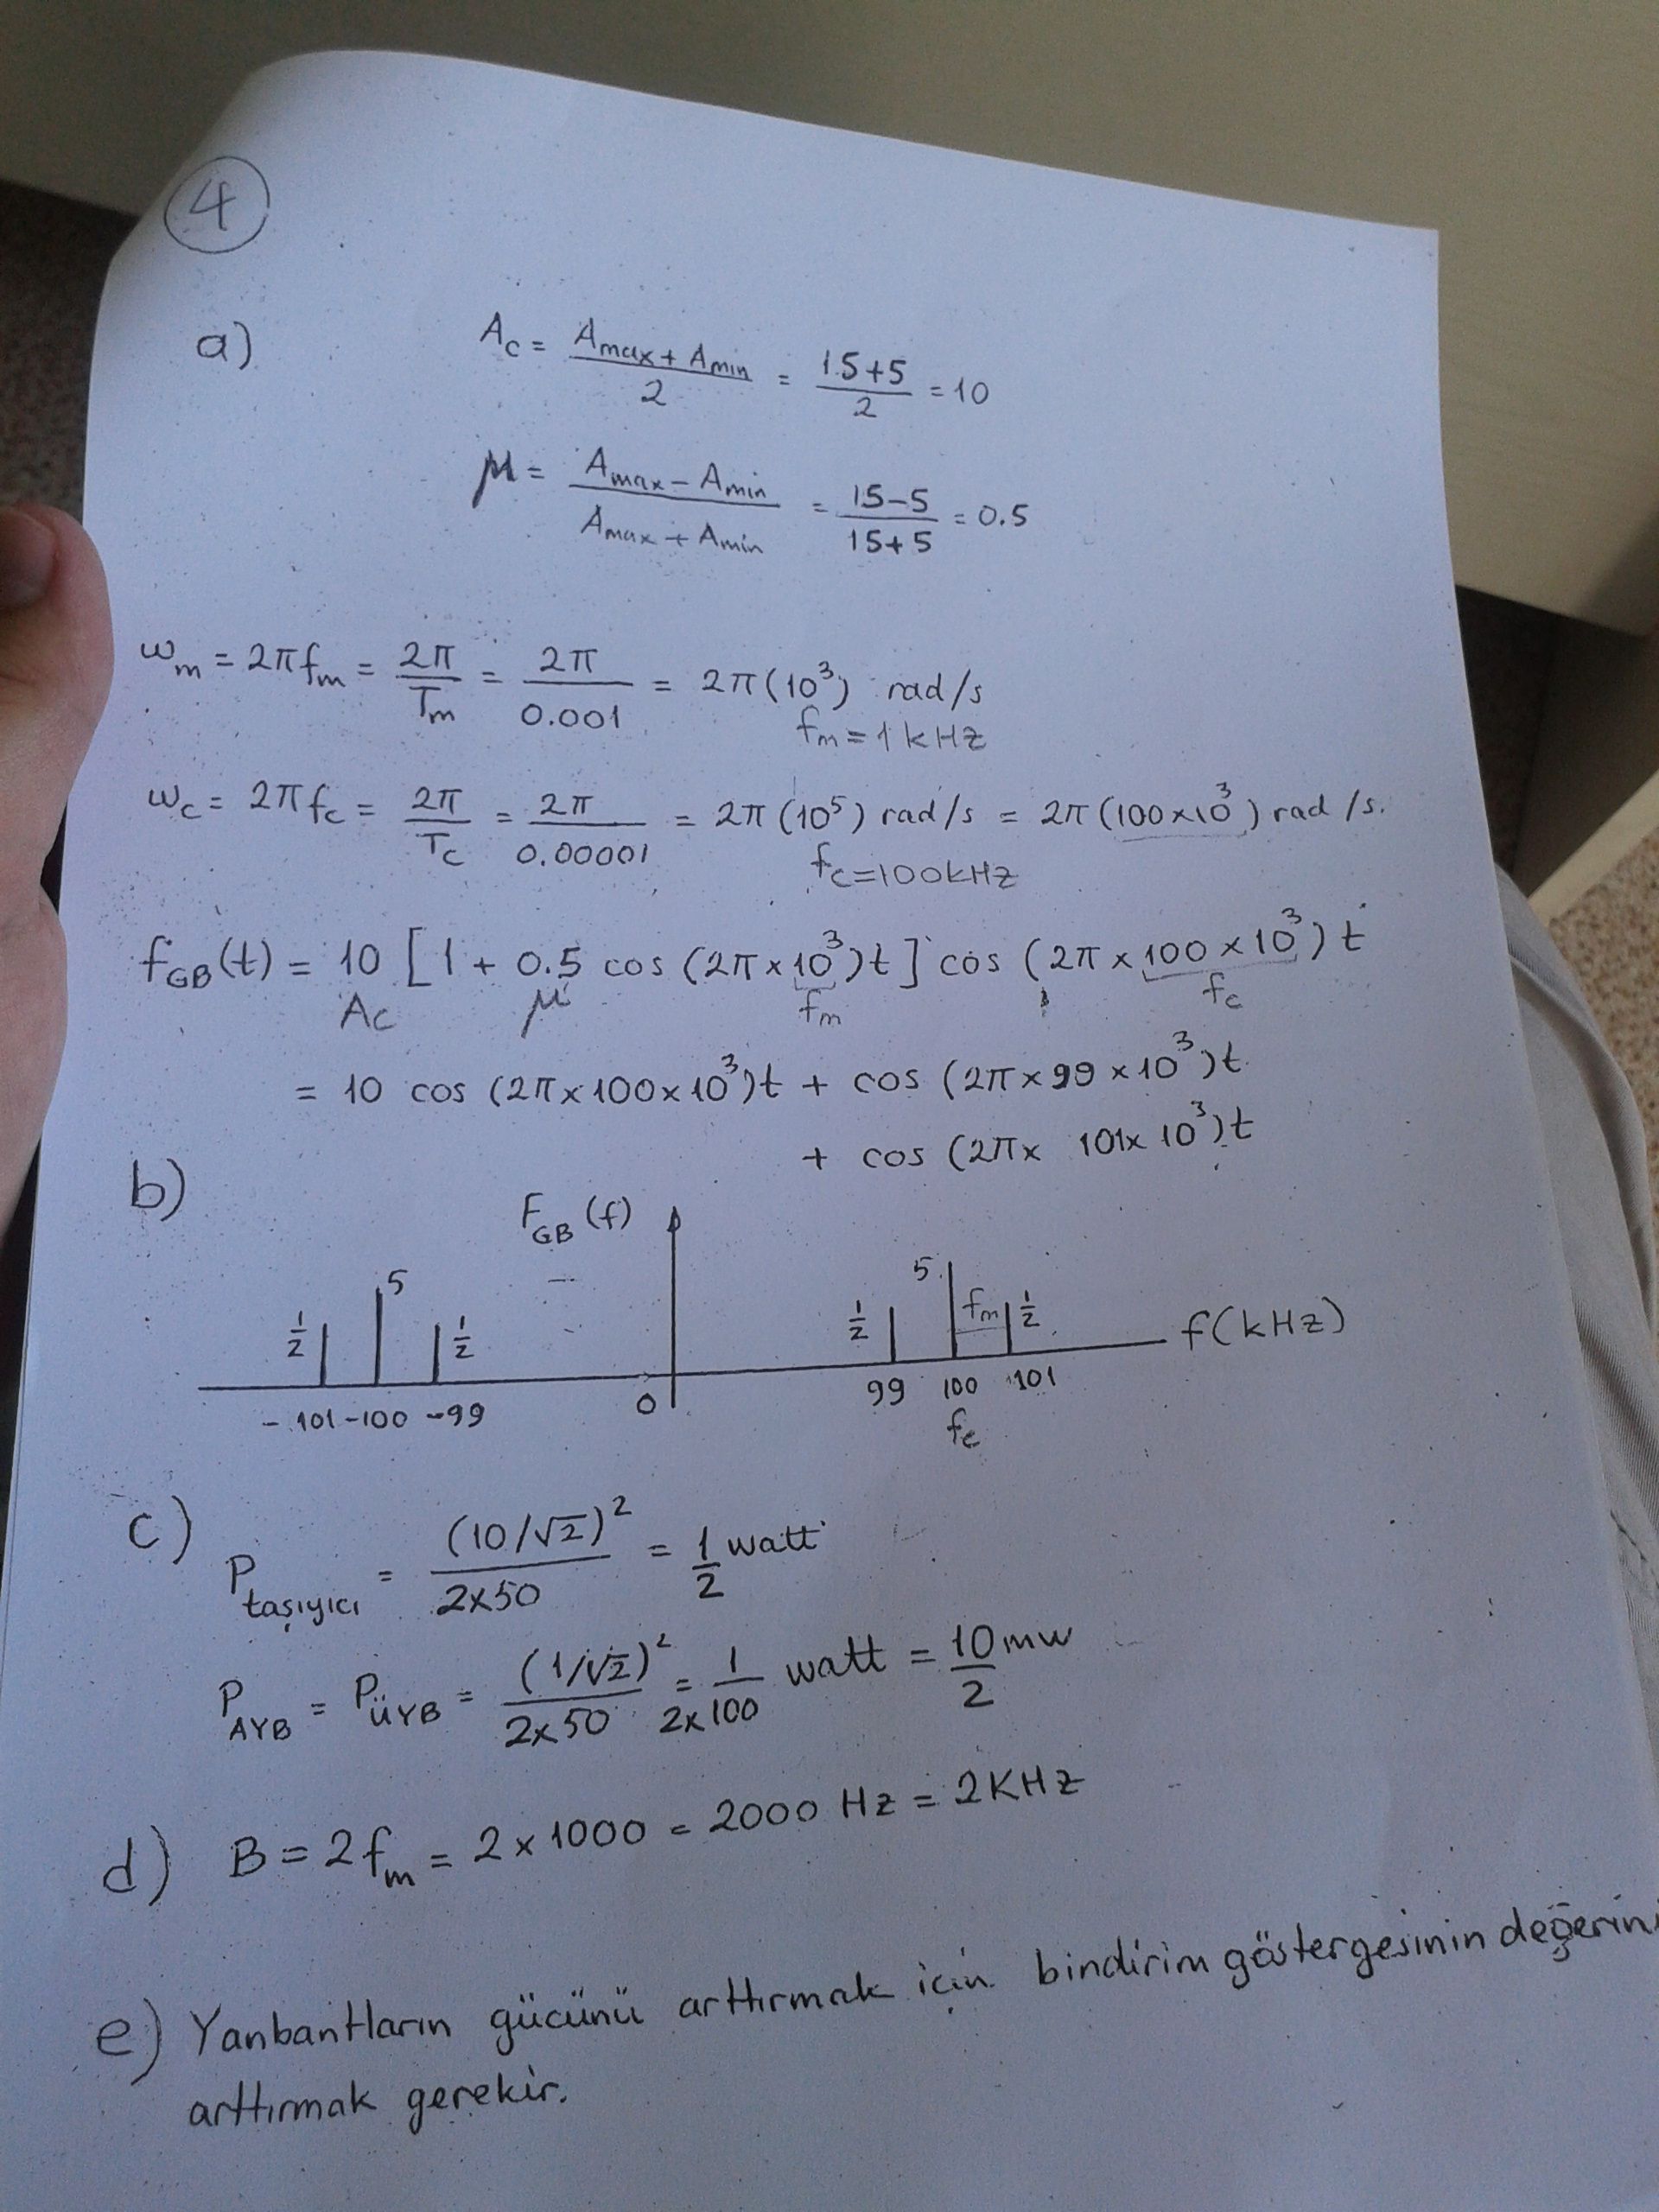 4
a) A_c = (A_max + A_min)/2 = (15+5)/2 = 10
μ = (A_max − A_min)/(A_max + A_min) = (15−5)/(15+5) = 0.5
ω_m = 2π f_m = 2π/T_m = 2π/0.001 = 2π(10³) rad/s
f_m = 1 kHz
ω_c = 2π f_c = 2π/T_c = 2π/0.00001 = 2π(10⁵) rad/s = 2π(100×10³) rad/s.
f_c = 100kHz
f_GB(t) = 10 [1 + 0.5 cos(2π×10³)t] cos(2π×100×10³)t
A_c μ f_m f_c
= 10 cos(2π×100×10³)t + cos(2π×99×10³)t
+ cos(2π× 101×10³)t
b)
F_GB(f)
1/2 5 1/2 1/2 5 f_m 1/2 f(kHz)
-101 -100 -99 0 99 100 101
f_c
c) P_taşıyıcı = (10/√2)²/(2×50) = 1/2 watt
P_AYB = P_ÜYB = (1/√2)²/(2×50) = 1/(2×100) watt = 10/2 mw
d) B = 2f_m = 2×1000 = 2000 Hz = 2KHz
e) Yanbantların gücünü arttırmak için bindirim göstergesinin değerini
arttırmak gerekir.